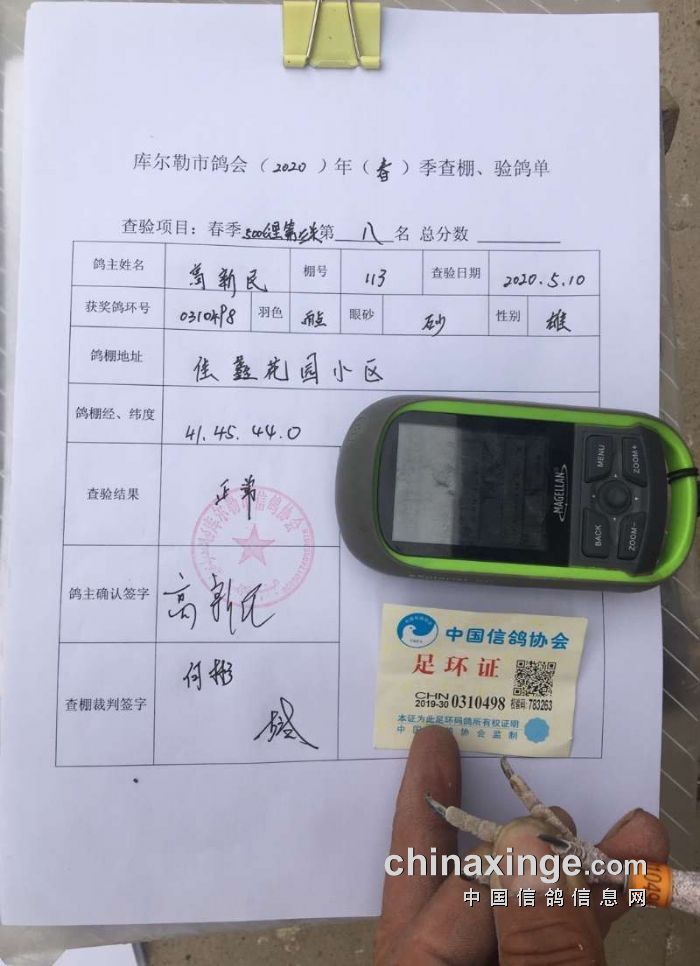 库尔勒市鸽会（2020）年（春）季查棚、验鸽单
查验项目：春季500公里第二关第 八 名 总分数
鸽主姓名 高新民 棚号 113 查验日期 2020.5.10
获奖鸽环号 0310498 羽色 雨点 眼砂 砂 性别 雄
鸽棚地址 佳鑫花园小区
鸽棚经、纬度 41.45.44.0
查验结果 正常
库尔勒市信鸽协会
鸽主确认签字 高新民
查棚裁判签字 何彬
MAGELLAN
MENU
ZOOM+
BACK
ZOOM-
中国信鸽协会
足环证
CHN
2019-30 0310498 校验码: 783263
本证为此足环码鸽所有权证明
中国 鸽协会监制
chinaxinge.com
中国信鸽信息网